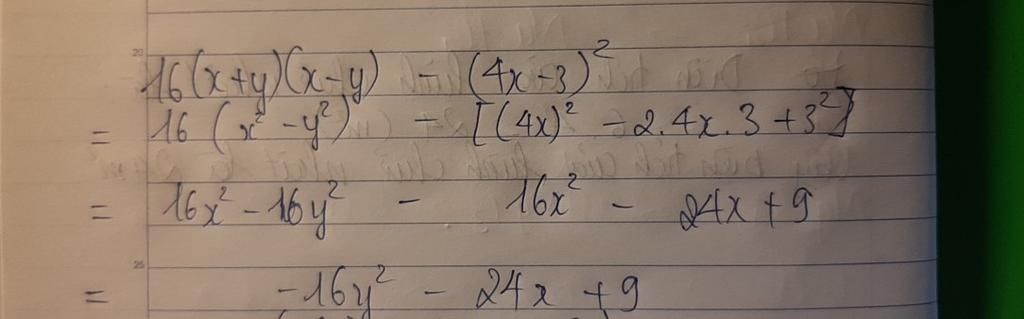 16(x+y)(x-y) - (4x-3)²
= 16(x²-y²) - [(4x)² - 2.4x.3 + 3²]
= 16x² - 16y² - 16x² - 24x + 9
= -16y² - 24x + 9